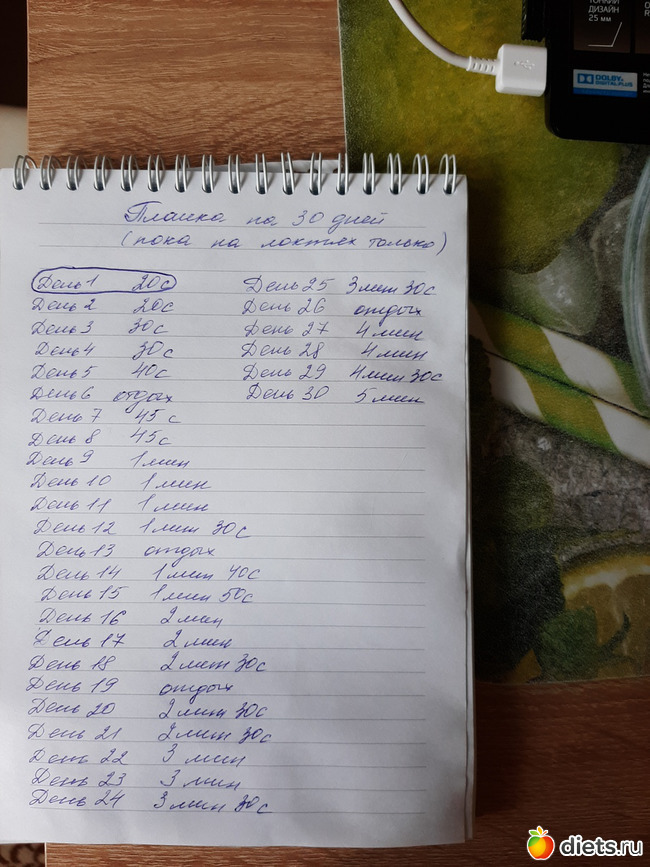 Планка на 30 дней
(пока на локтях только)
День 1 20с
День 2 20с
День 3 30с
День 4 30с
День 5 40с
День 6 отдых
День 7 45с
День 8 45с
День 9 1 мин
День 10 1 мин
День 11 1 мин
День 12 1 мин 30с
День 13 отдых
День 14 1 мин 40с
День 15 1 мин 50с
День 16 2 мин
День 17 2 мин
День 18 2 мин 30с
День 19 отдых
День 20 2 мин 30с
День 21 2 мин 30с
День 22 3 мин
День 23 3 мин
День 24 3 мин 30с
День 25 3 мин 30с
День 26 отдых
День 27 4 мин
День 28 4 мин
День 29 4 мин 30с
День 30 5 мин
ТОНКИЙ
ДИЗАЙН
25 мм
DOLBY
DIGITAL PLUS
diets.ru